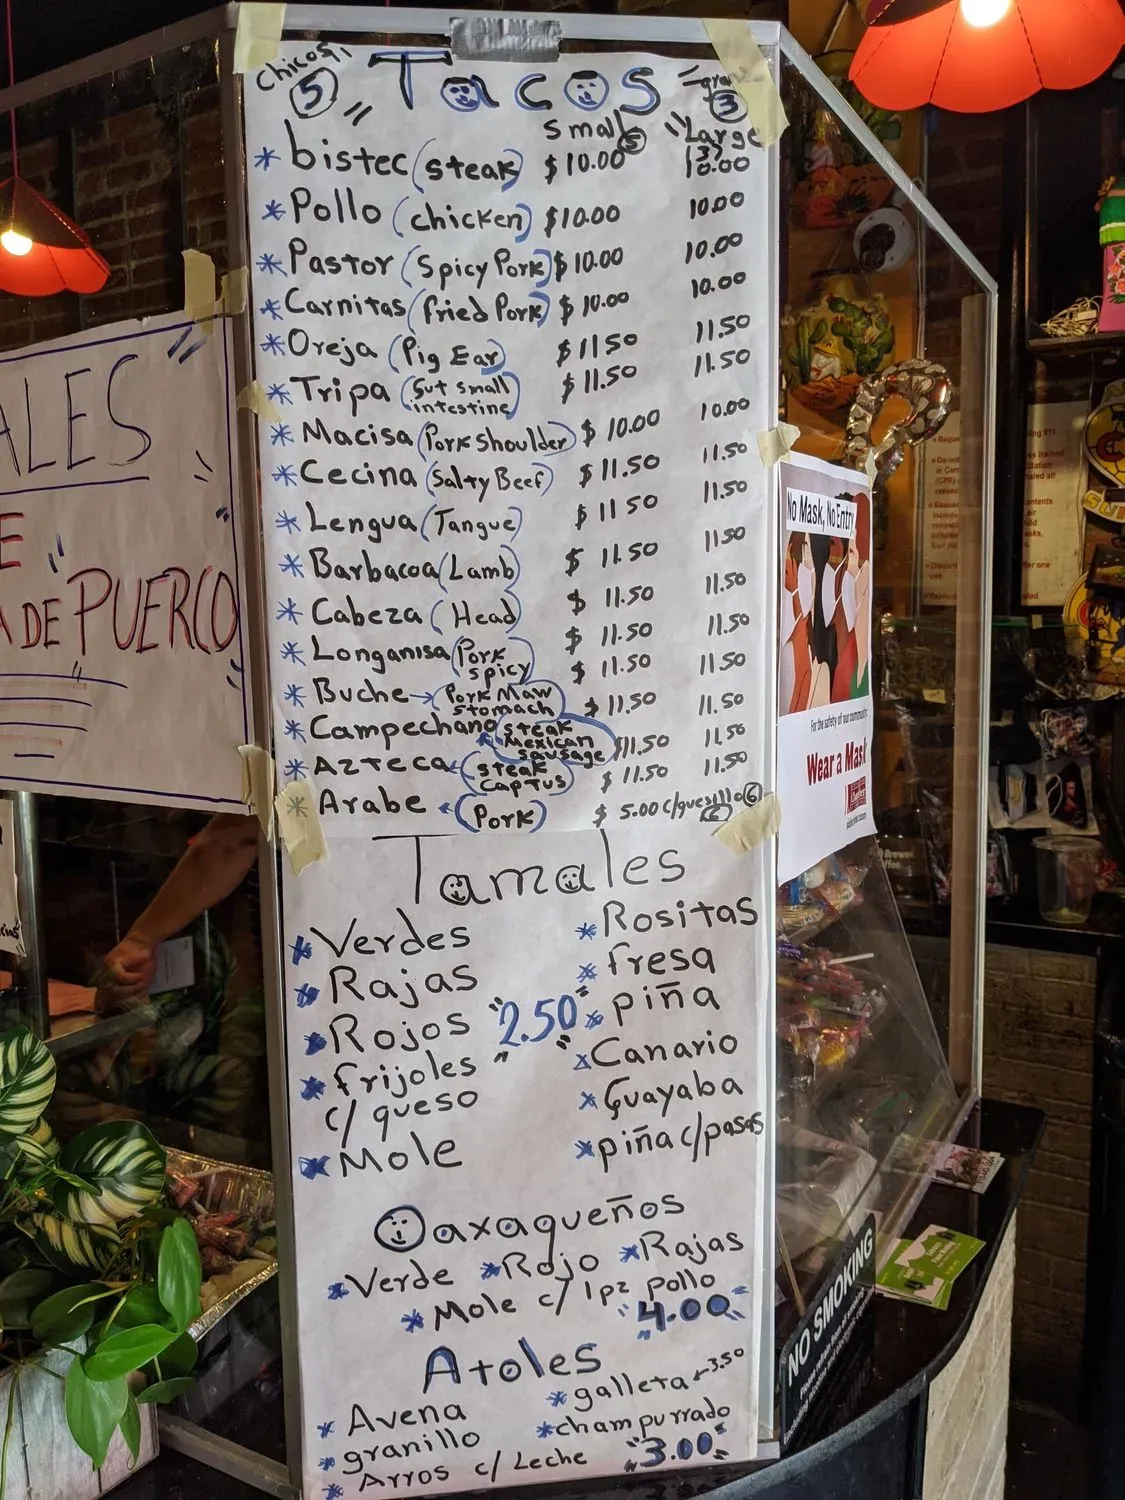 Chicos
5
" Tacos "
3
Small 5 "Large 3"
* bistec (steak) $10.00 10.00
* Pollo (chicken) $10.00 10.00
* Pastor (Spicy Pork) $10.00 10.00
* Carnitas (fried Pork) $10.00 10.00
* Oreja (Pig Ear) $11.50 11.50
* Tripa (Gut small intestine) $11.50 11.50
* Macisa (Pork shoulder) $10.00 10.00
* Cecina (Salty Beef) $11.50 11.50
* Lengua (Tangue) $11.50 11.50
* Barbacoa (Lamb) $11.50 11.50
* Cabeza (Head) $11.50 11.50
* Longanisa (Pork spicy) $11.50 11.50
* Buche → (Pork Maw stomach) $11.50 11.50
* Campechano (steak Mexican sausage) $11.50 11.50
* Azteca (steak captus) $11.50 11.50
* Arabe (Pork) $5.00 c/quesillo 6
Tamales
* Verdes
* Rajas
* Rojos
* frijoles
c/ queso
* Mole
"2.50"
* Rositas
* fresa
* piña
* Canario
* Guayaba
* piña c/pasas
Oaxaqueños
* Verde * Rojo * Rajas
* Mole c/ 1pz pollo
"4.00"
Atoles
* Avena
* granillo
* Arros c/ Leche
* galleta 3.50
* champurrado
"3.00"
ALES
E
A DE PUERCO
No Mask, No Entry
For the safety of our community
Wear a Mask
NO SMOKING